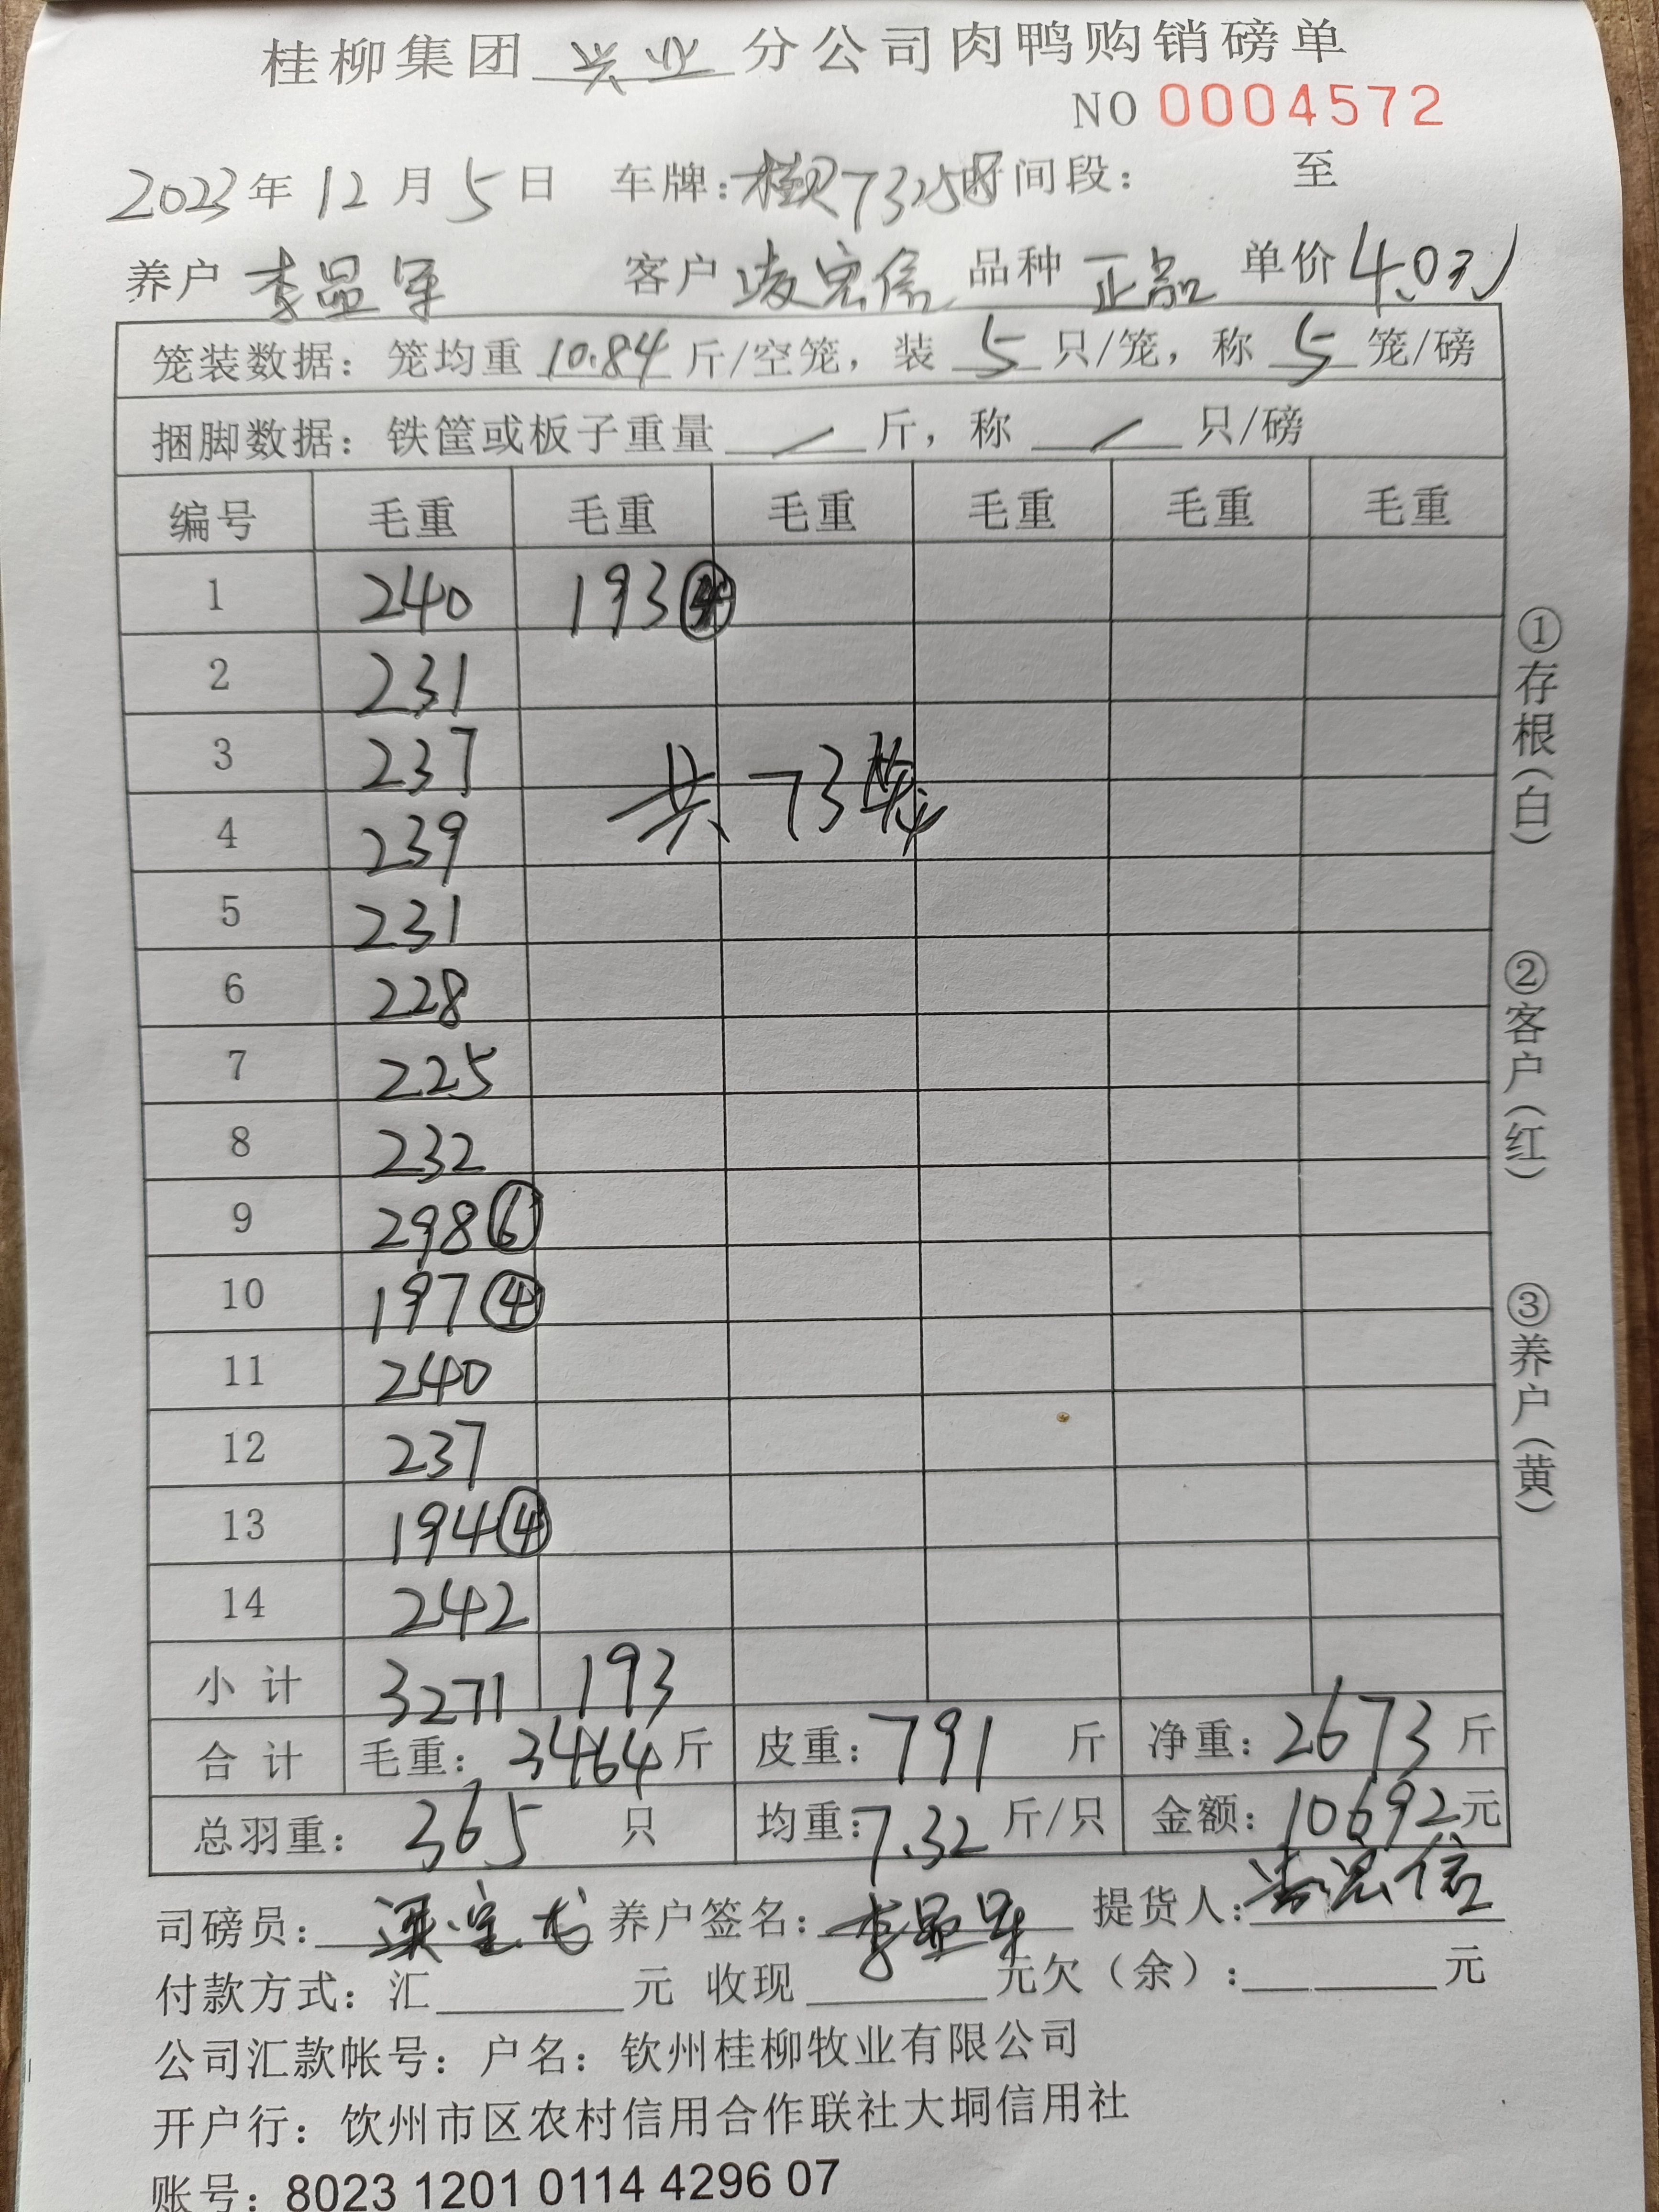 桂柳集团 兴业 分公司肉鸭购销磅单
NO 0004572
2023年12月5日 车牌: 桂 73258 时间段: 至
养户 李显军 客户 凌宏信 品种 正品 单价 4.0元
笼装数据: 笼均重 10.84 斤/空笼, 装 5 只/笼, 称 5 笼/磅
捆脚数据: 铁筐或板子重量 / 斤, 称 / 只/磅
编号 毛重 毛重 毛重 毛重 毛重 毛重
1 240 193④
2 231
3 237
4 239
共73笼
5 231
6 228
7 225
8 232
9 298⑥
10 197④
11 240
12 237
13 194④
14 242
小计 3271 193
合计 毛重: 3464斤 皮重: 791 斤 净重: 2673斤
总羽重: 365 只 均重: 7.32斤/只 金额: 10692元
司磅员: 养户签名: 李显军 提货人: 凌宏信
付款方式: 汇 元 收现 元欠(余): 元
公司汇款帐号: 户名: 钦州桂柳牧业有限公司
开户行: 钦州市区农村信用合作联社大垌信用社
账号: 8023 1201 0114 4296 07
①存根(白) ②客户(红) ③养户(黄)